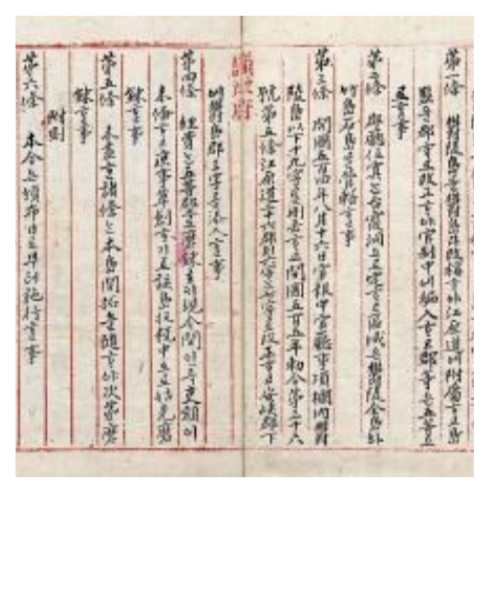 第一條 欝陵島를 欝島로 改稱ᄒᆞ야 江原道에 附屬ᄒᆞ고 島
監을 郡守로 改正ᄒᆞ야 官制中에 編入ᄒᆞ고 郡等은 五等으
로 ᄒᆞᆯ 事
第二條 郡廳位寘는 台霞洞으로 定ᄒᆞ고 區域은 欝陵全島와
竹島石島를 管轄ᄒᆞᆯ 事
第三條 開國五百四年八月十六日官報中官廳事項欄內欝
陵島以下十九字를 刪去ᄒᆞ고 開國五百五年勅令第三十六
號第五條江原道二十六郡의 六字는 七字로 改正ᄒᆞ고 安峽郡下
議政府
에 欝島郡三字를 添入ᄒᆞᆯ 事
第四條 經費는 五等郡으로 磨鍊호ᄃᆡ 現今間인즉 吏額이
未備ᄒᆞ고 庶事草創ᄒᆞ기로 該島收稅中으로 姑先磨
鍊ᄒᆞᆯ 事
第五條 未盡ᄒᆞᆫ 諸條는 本島開拓을 隨ᄒᆞ야 次第磨
鍊ᄒᆞᆯ 事
附則
第六條 本令은 頒布日로부터 施行ᄒᆞᆯ 事